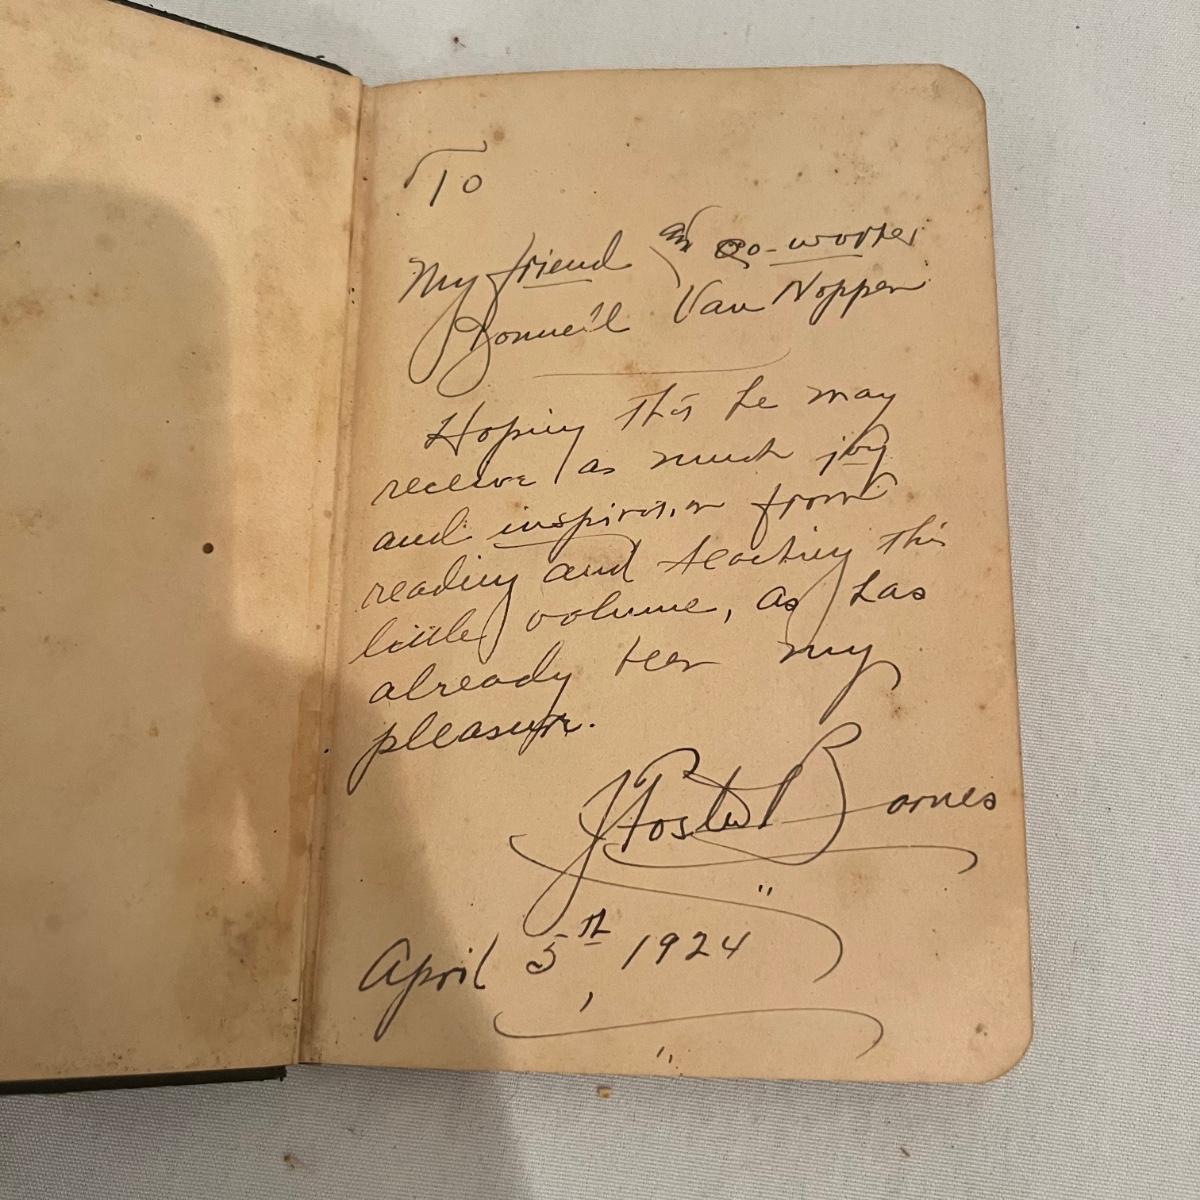 To
My friend and co-worker
Donnell Van Noppen
Hoping that he may
receive as much joy
and inspiration from
reading and teaching this
little volume, as has
already been my
pleasure.
J Foster Barnes
April 5th, 1924